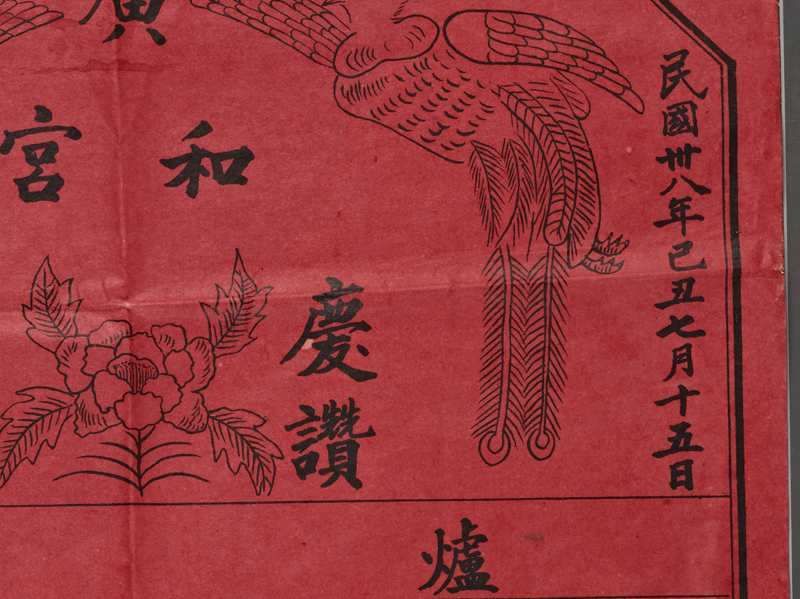 民國卅八年己丑七月十五日
慶讚
和宮
爐